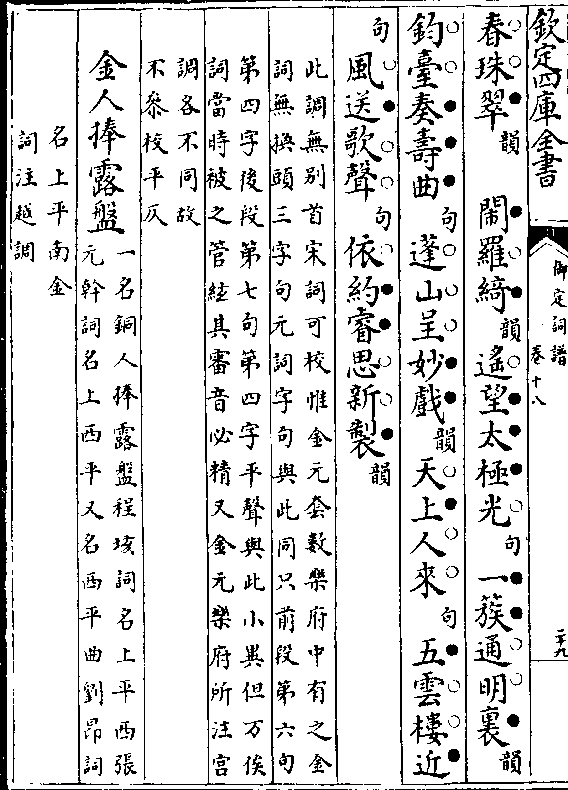 欽定四庫全書
御定詞譜
卷十八
二十九
春珠翠韻　鬧羅綺韻遙望太極光句一簇通明裏韻
鈞臺奏壽曲句蓬山呈妙戲韻天上人來句五雲樓近
句風送歌聲句依約睿思新製韻
此調無別首宋詞可校惟金元套數樂府中有之金
詞無換頭三字句元詞字句與此同只前段第六句
第四字後段第七句第四字平聲與此小異但万俟
詞當時被之管絃其審音必精又金元樂府所注宮
調各不同故
不叅校平仄
金人捧露盤
一名銅人捧露盤程垓詞名上平西張
元幹詞名上西平又名西平曲劉昂詞
名上平南金
詞注越調